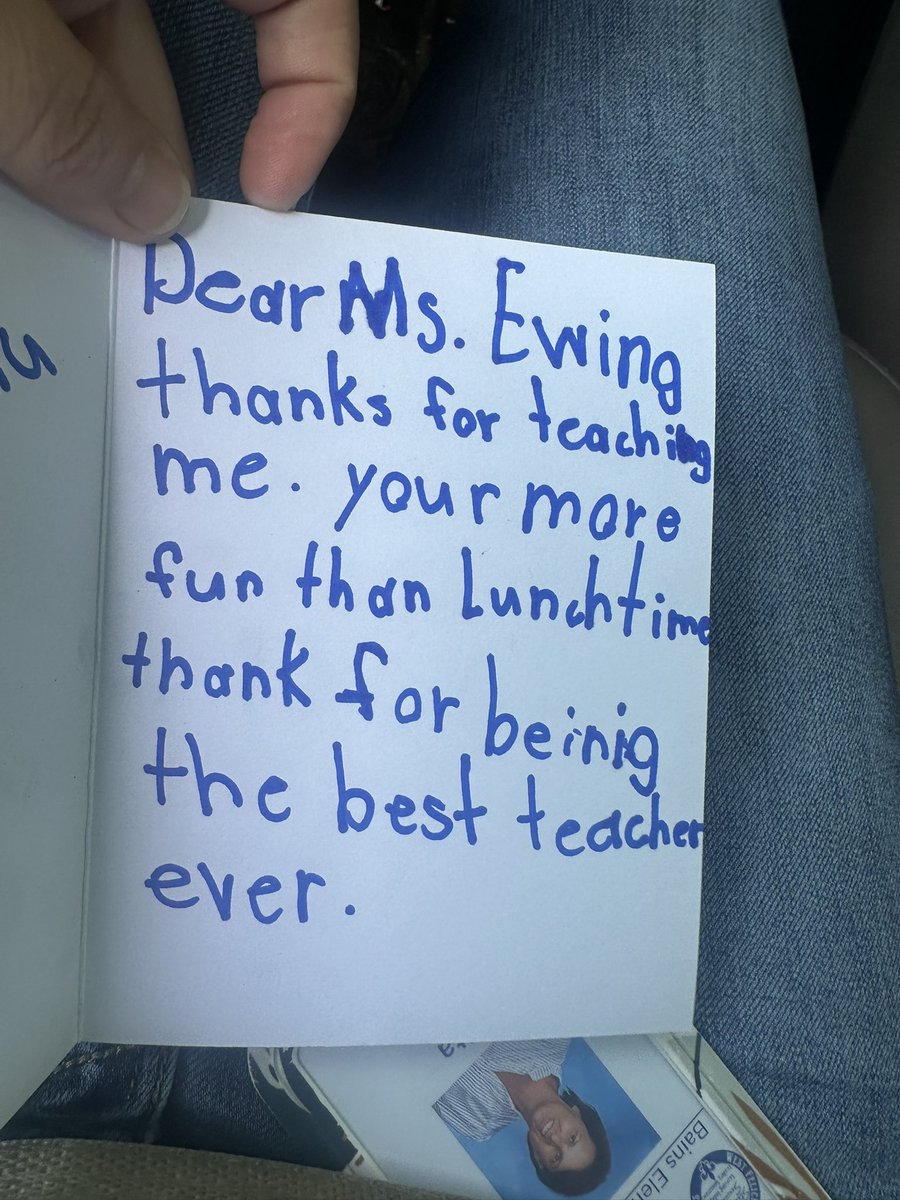 Dear Ms. Ewing
thanks for teaching
me. your more
fun than Lunchtime
thank for beinig
the best teacher
ever.
Bains Elem